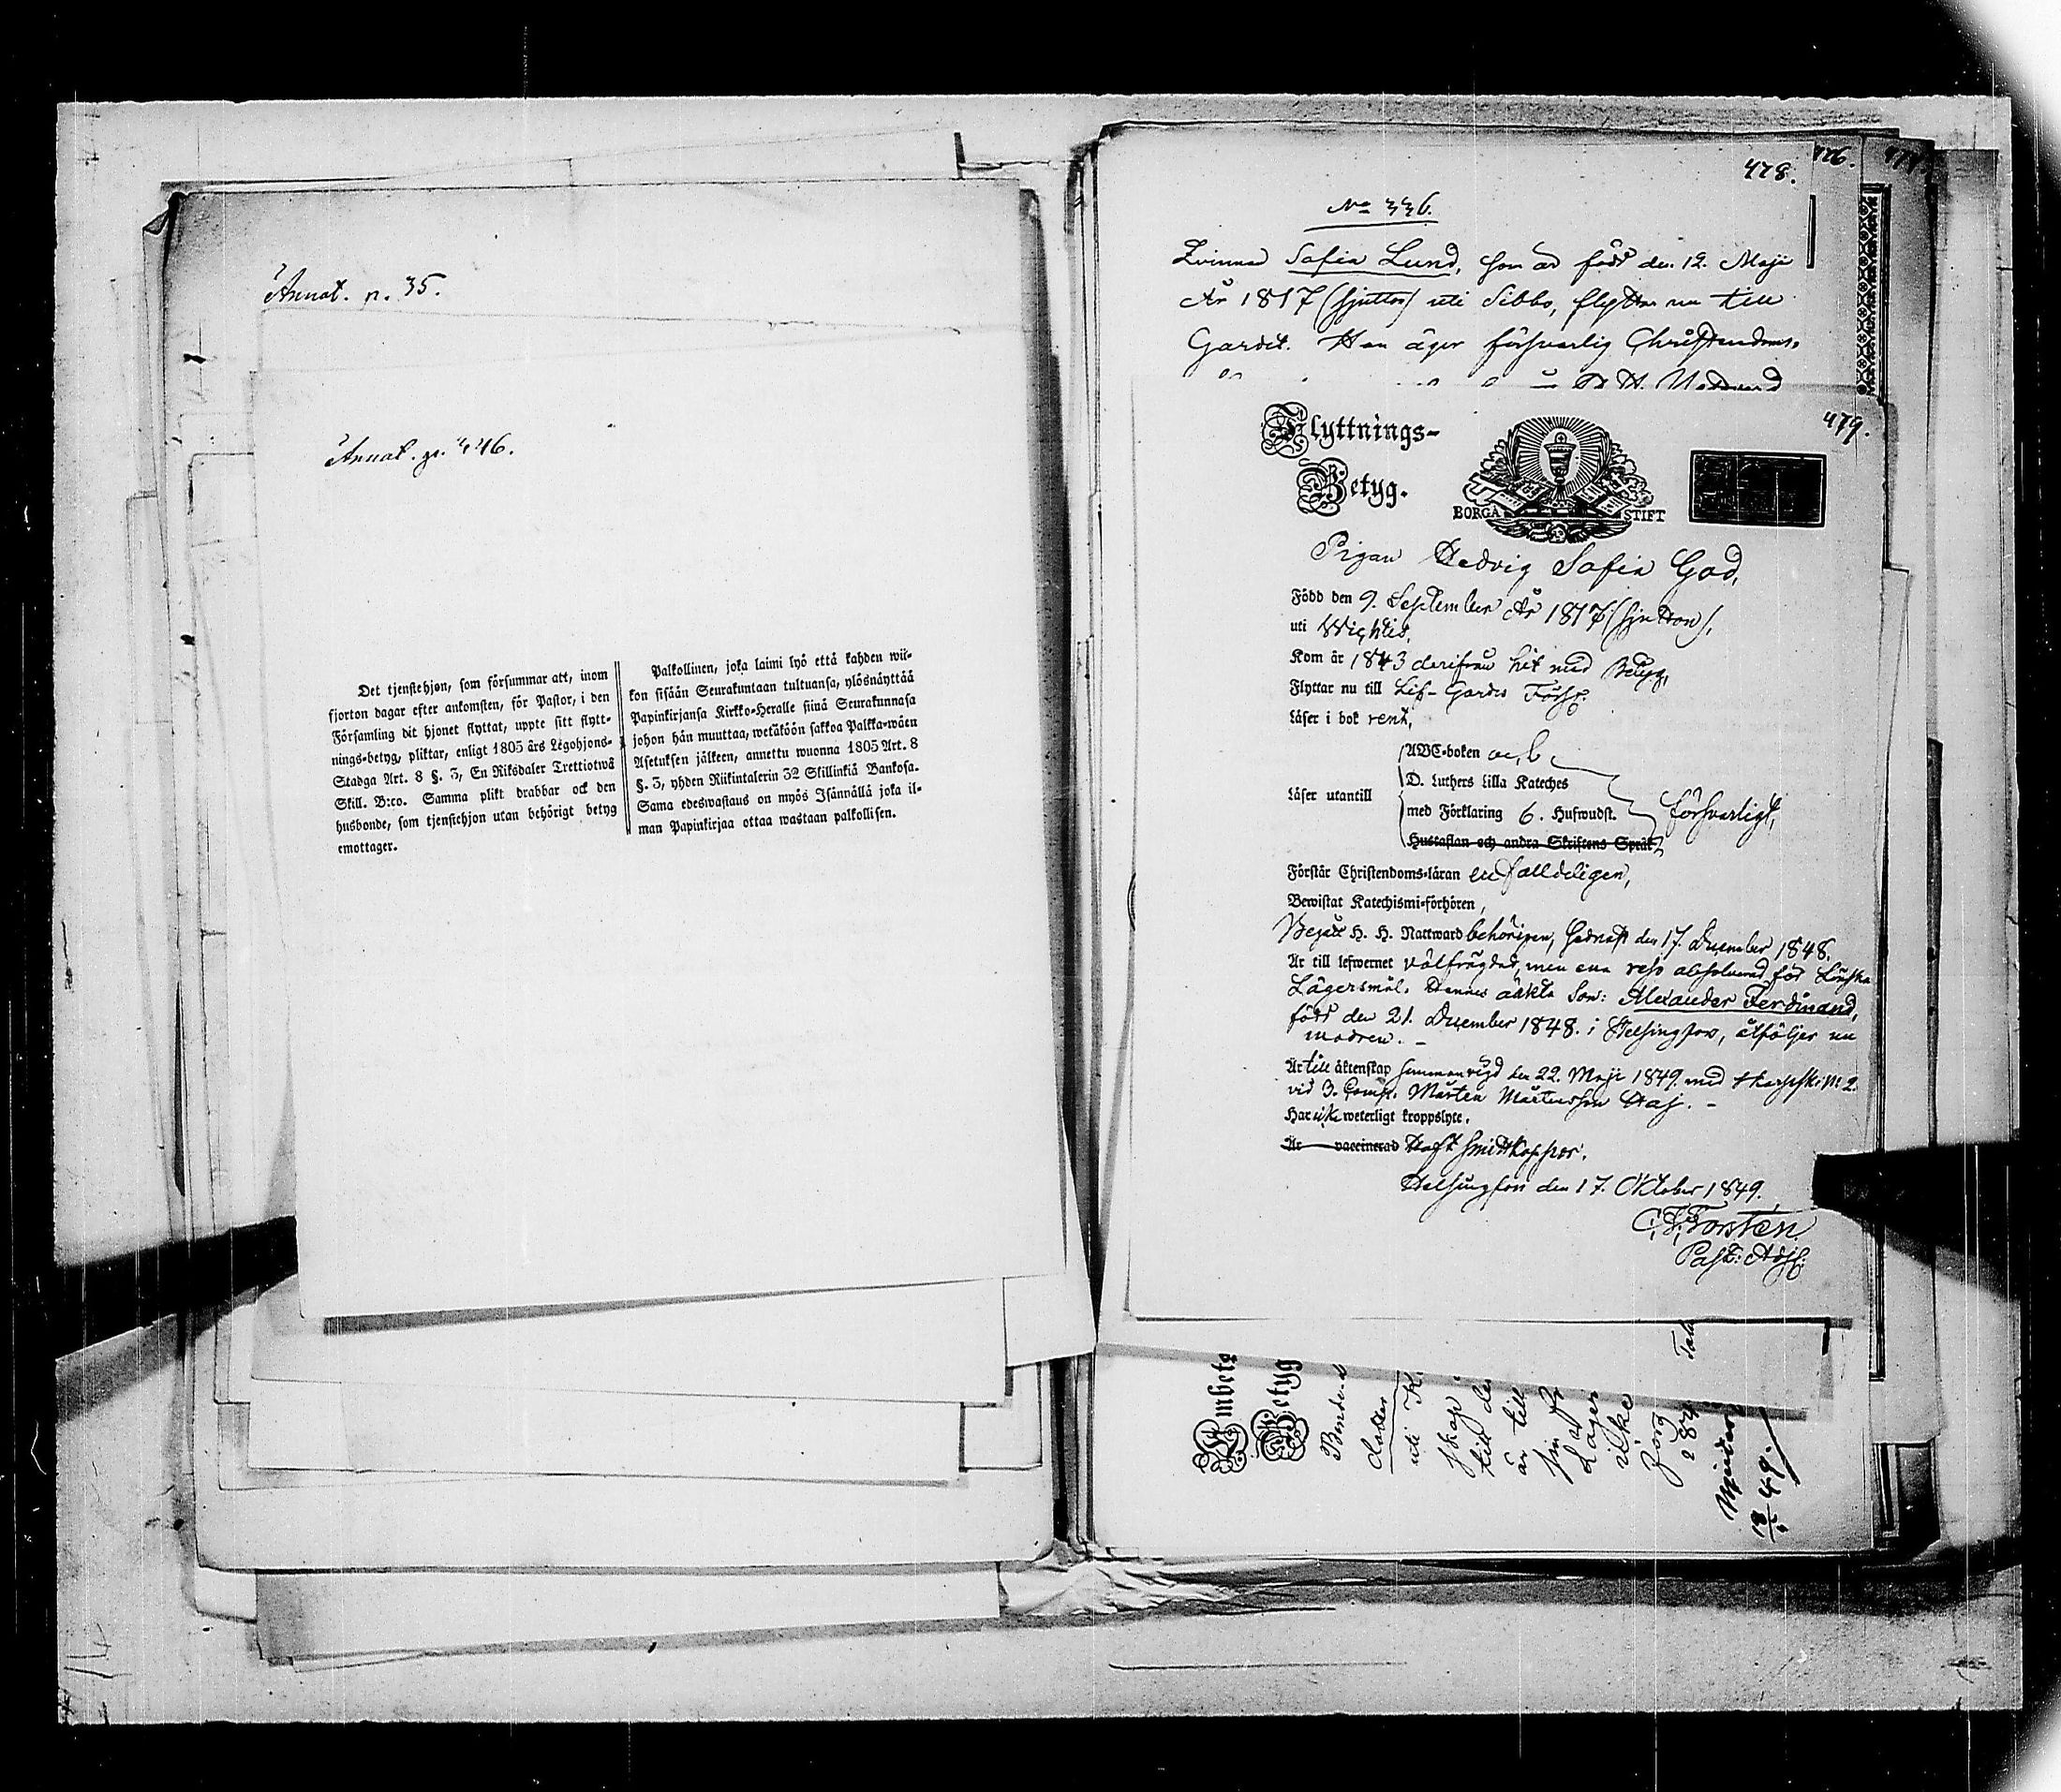 Annot. p. 35.
Annot. p. 446.
Det tjenstehjon, som försummar att, inom
fjorton dagar efter ankomsten, för Pastor, i den
Församling dit hjonet flyttat, uppte sitt flytt-
nings-betyg, pliktar, enligt 1805 års Legohjons-
Stadga Art. 8 §. 3, En Riksdaler Trettiotwå
Skill. B:co. Samma plikt drabbar ock den
husbonde, som tjenstehjon utan behörigt betyg
emottager.
Palkollinen, joka laimi lyö että kahden wii-
kon sisään Seurakuntaan tultuansa, ylösnäyttää
Papinkirjansa Kirkko-Heralle siinä Seurakunnasa
johon hän muuttaa, wetäköön sakkoa Palkka-wäen
Asetuksen jälkeen, annettu wuonna 1805 Art. 8
§. 3, yhden Riikintalerin 32 Skillinkiä Bankosa.
Sama edeswastaus on myös Isännällä joka il-
man Papinkirjaa ottaa wastaan palkollisen.
478. 476.
No 336.
Qvinnan Sofia Lund, som är född den 12. Maji
År 1817 (sjutton) uti Sibbo, flyttar nu till
Gardet. Hon äger försvarlig Christendoms-
H. H. Nattward
479.
Flyttnings-
Betyg.
BORGÅ STIFT
Pigan Hedvig Sofia God,
Född den 9. September År 1817 (sjutton),
uti Wichtis,
Kom år 1843 derifrån hit med Betyg,
Flyttar nu till Lif-Gardes Förs:
Läser i bok rent,
ABC-boken och
D. Luthers Lilla Kateches
Läser utantill
med Förklaring 6. Hufwudst. försvarligt,
Hustaflan och andra Skriftens Språk
Förstår Christendoms-läran enfaldeligen,
Bewistat Katechismi-förhören,
Begått H. H. Nattward behörigen, sednast den 17. December 1848.
Är till lefwernet välfrägdad, men en resa absolverad för Lönska
Lägersmål. Hennes oäkta Son: Alexander Ferdinand,
född den 21. December 1848. i Helsingfors, åtföljer nu
modren. –
Är till äktenskap sammanvigd den 22. Maji 1849. med Skarpsk: N 2.
vid 3. Comp. Mårten Mårtensson Haj. –
Har icke weterligt kroppslyte.
Är vaccinerad Haft smittkoppor.
Helsingfors den 17. Oktober 1849.
C. F. Forstén
Past: Adj:
Ambets
Betyg
dotter
uti K
skap
till
är till
sin
läger
icke